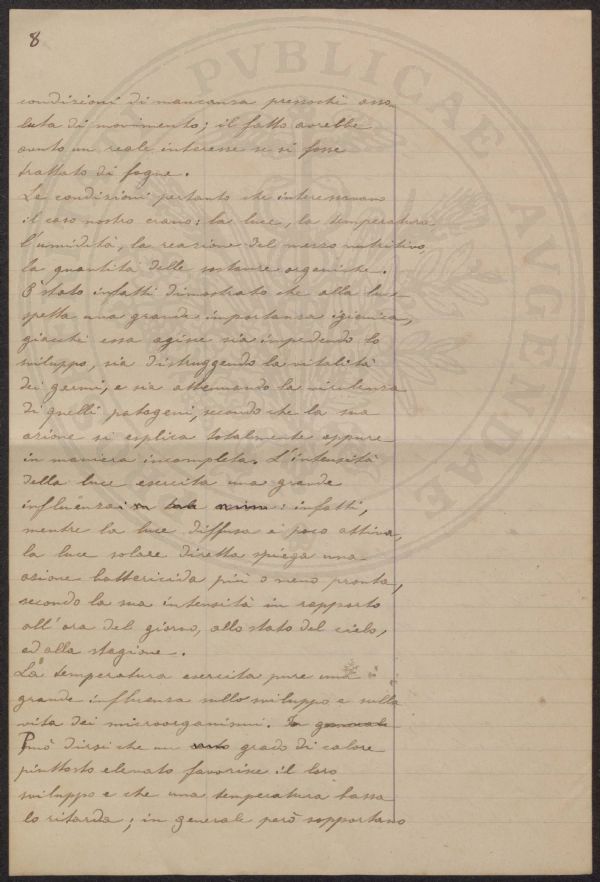 8
condizioni di mancanza pressochè asso
luta di movimento; il fatto avrebbe
avuto un reale interesse se si fosse
trattato di fogne.
Le condizioni pertanto che interessavano
il caso nostro erano: la luce, la temperatura
l'umidità, la reazione del mezzo nutritivo,
la quantità delle sostanze organiche.
È stato infatti dimostrato che alla luce
spetta una grande importanza igienica,
giacchè essa agisce sia impedendo lo
sviluppo, sia distruggendo la vitalità
dei germi, e sia attenuando la virulenza
di quelli patogeni, secondo che la sua
azione si esplica totalmente oppure
in maniera incompleta. L'intensità
della luce esercita una grande
influenza: infatti,
mentre la luce diffusa è poco attiva,
la luce solare diretta spiega una
azione battericida più o meno pronta,
secondo la sua intensità in rapporto
all'ora del giorno, allo stato del cielo,
ed alla stagione.
La temperatura esercita pure una
grande influenza sullo sviluppo e sulla
vita dei microorganismi. In generale
Può dirsi che un grado di calore
piuttosto elevato favorisce il loro
sviluppo e che una temperatura bassa
lo ritarda; in generale però sopportano
PVBLICAE AVGENDAE